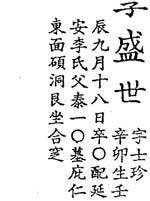 子盛世
字士珍
辛卯生壬
辰九月十八日卒〇配延
安李氏父泰一〇墓庇仁
東面碩洞艮坐合窆